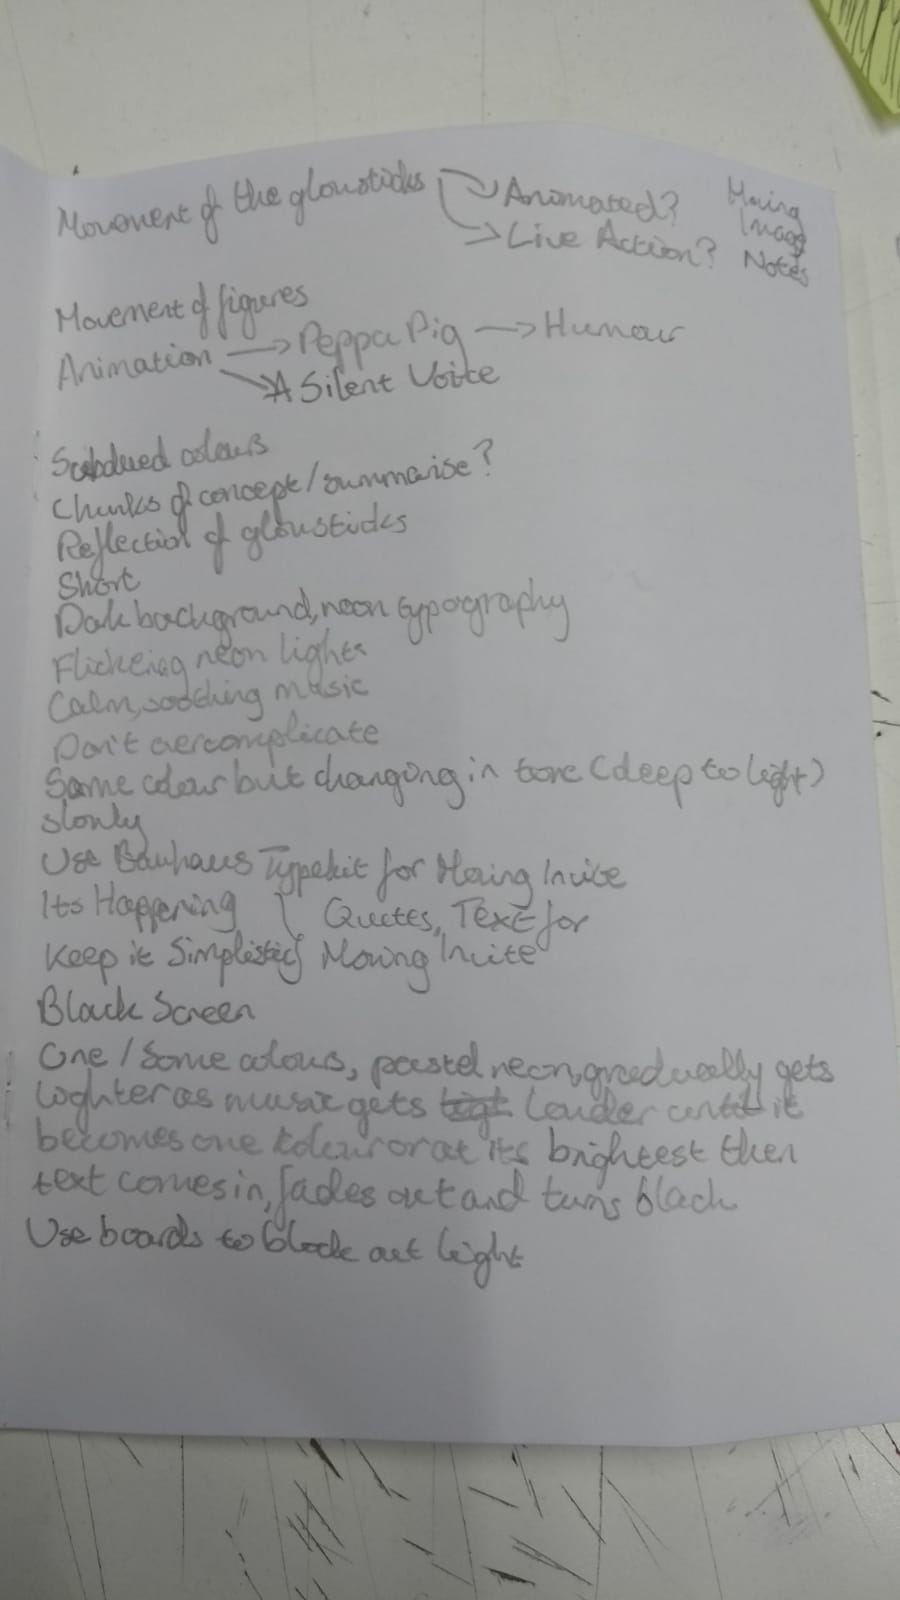 Movement of the glowsticks → Animated?
→ Live Action?
Moving
Image
Notes
Movement of figures
Animation → Peppa Pig → Humour
→ A Silent Voice
Subdued colours
Chunks of concept/summarise?
Reflection of glowsticks
Short
Dark background, neon typography
Flickering neon lights
Calm, soothing music
Don't overcomplicate
Same colour but changing in tone (deep to light)
slowly
Use Bauhaus Typekit for Moving Invite
Its Happening } Quotes, Text for
Keep it Simplistic } Moving Invite
Black Screen
One / Some colours, pastel neon, gradually gets
lighter as music gets louder until it
becomes one colour or at its brightest then
text comes in, fades out and turns black
Use boards to block out light